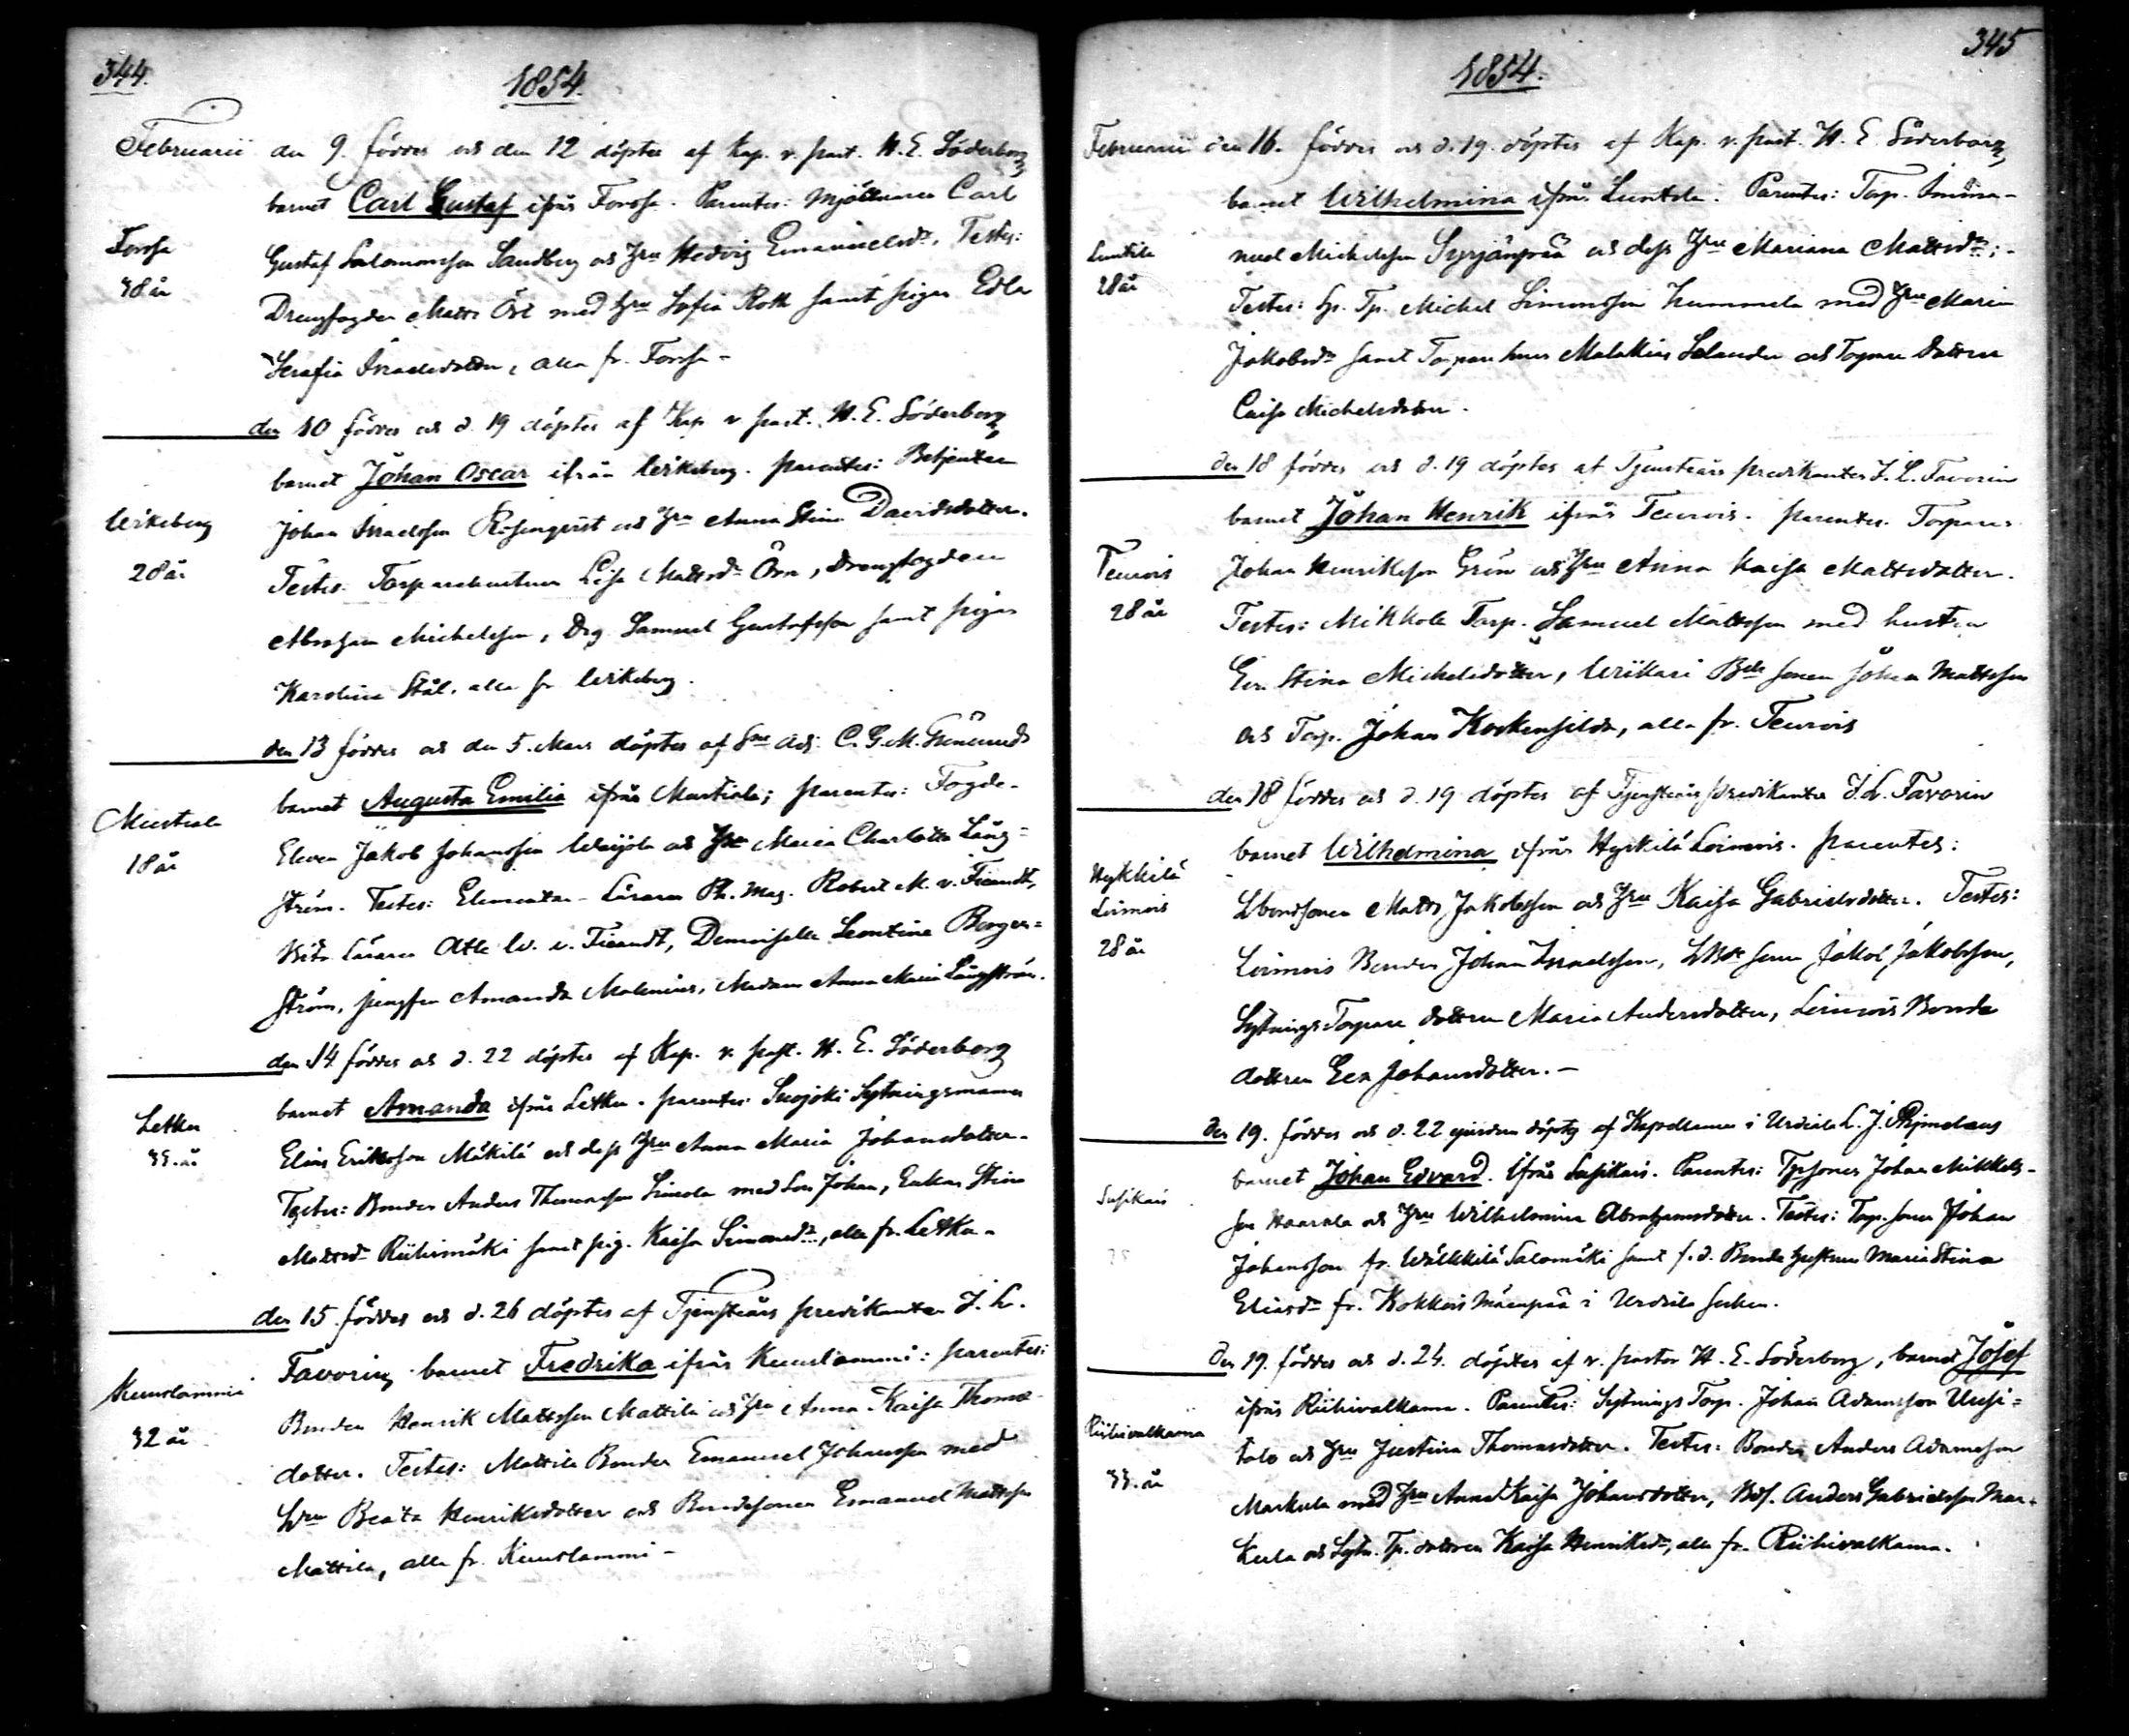 344.
1854.
Februarii den 9. föddes och den 12 döptes af Kap. v. past. H. E. Söderborg
barnet Carl Gustaf ifrån Forssa. Parentes: Mjölnaren Carl
Forssa
Gustaf Salomonsson Sandberg och Hru Hedvig Emanuelsdr. Testes:
38 år
Drengfogden Matts Öst med Hru Sofia Roth samt pigan Edla
Serafia Israelsdotter, alla fr. Forssa -
den 10 föddes och d. 19 döptes af Kap v past. H. E. Söderborg
barnet Johan Oscar ifrån Wiksberg. parentes: Betjenten
Wiksberg
Johan Israelsson Rosenqvist och Hru Anna Stina Davidsdotter.
28 år
Testes: Torparehustrun Lisa Mattsdr Örn, Drengfogden
Abraham Michelsson, Drg. Samuel Gustafsson samt pigan
Karolina Stål, alla fr Wiksberg.
den 13 föddes och den 5. Mars döptes af Sne Adj. C. G. M.
barnet Augusta Emilia ifrån Mustiala; parentes: Fogde-
Mustiala
Eleven Jakob Johansson och Hru Maria Charlotta Lång-
18 år
ström. Testes: Elementar-Läraren Ph. Mag. Robert M. v. Fieandt,
Läraren Atle W. v. Fieandt, Demoiselle Leontine Berger-
ström, jungfru Amanda Malenius, Madam Anna Maria Långström.
den 14 föddes och d. 22 döptes af Kap. v. past. H. E. Söderborg
barnet Amanda ifrån Letku. parentes: Suojoki Sytningsmannen
Letku
33. år
Elias Eriksson Mäkilä och dess Hru Anna Maria Johansdotter.
Testes: Bonden Anders Thomasson Simola med Son Johan, Enkan Stina
Mattsdr Riihimäki samt pig. Kaisa Simonsdr, alla fr. Letku.
den 15 föddes och d. 26 döptes af Tjensteårs predikanten J. L.
Favorin, barnet Fredrika ifrån Kuuslammi: parentes:
Kuuslammi
Bonden Henrik Mattsson Mattila och Hru Anna Kaisa Thomæ-
32 år
dotter. Testes: Mattila Bonden Emanuel Johansson med
Hru Beata Henriksdotter och Bondesonen Emanuel Mattsson
Mattila, alla fr. Kuuslammi -
345
1854.
Februarii den 16. föddes och d. 19. döptes af Kap. v. past. H. E Söderborg,
barnet Wilhelmina ifrån Luntila. Parentes: Torp. Imma-
Luntila
nuel Michelsson Syrjänpää och dess Hru Mariana Mattsdr; -
28 år
Testes: Tp. Michel Simonsson Hummela med Hru Maria
Jakobsdr samt Torpare Malakias Selander och Torpare dottren
Caisa Michelsdotter.
den 18 föddes och d. 19 döptes af Tjensteårs predikanten J. L. Favorin
barnet Johan Henrik ifrån Teurois. parentes. Torparen
Teurois
Johan Henriksson Grön och Hru Anna Kaisa Mattsdotter.
28 år
Testes: Mikkola Torp. Samuel Mattsson med hustru
Eva Stina Michelsdotter, Wiikari Bde sonen Johan Mattsson
och Torp. Johan Koskensilda, alla fr. Teurois
den 18 föddes och d. 19 döptes af Tjensteårs predikanten J. L. Favorin
barnet Wilhelmina ifrån Hykkilä Loimois. parentes:
Hykkilä
Loimois
Matts Jakobsson och Hru Kaisa Gabrielsdotter. Testes:
28 år
Loimois Bonden Johan Israelsson, sonen Jakob Jakobsson,
Sytnings Torpare dottren Maria Andersdotter, Loimois Bonde
dottren Eva Johansdotter. -
den 19. föddes och d. 22 döptes af Kapellanen i Urdiala L. J.
barnet Johan Edvard. ifrån Susikais. Parentes: Tpsonen Johan Mikkels-
Susikais
son och Hru Wilhelmina Abrahamsdotter. Testes: Torp. sonen Johan
Johansson fr. Wälkkilä Salomäki samt f. d. Bonde hustrun Maria Stina
Eliasdr fr. Kokkois Mäenpää i Urdiala socken.
den 19. föddes och d. 24. döptes af v. pastor H. E. Söderborg, barnet Josef
ifrån Riihivalkama. Parentes: Sytnings Torp. Johan Adamsson Uusi-
Riihivalkama
talo och Hru Justina Thomasdotter. Testes: Bonden Anders Adamsson
33. år
Markula med Hru Anna Kaisa Johansdotter, Bds. Anders Gabrielsson Mar-
kula och Sytn. Tp. dottren Kaisa Henriksdr, alla fr. Riihivalkama.